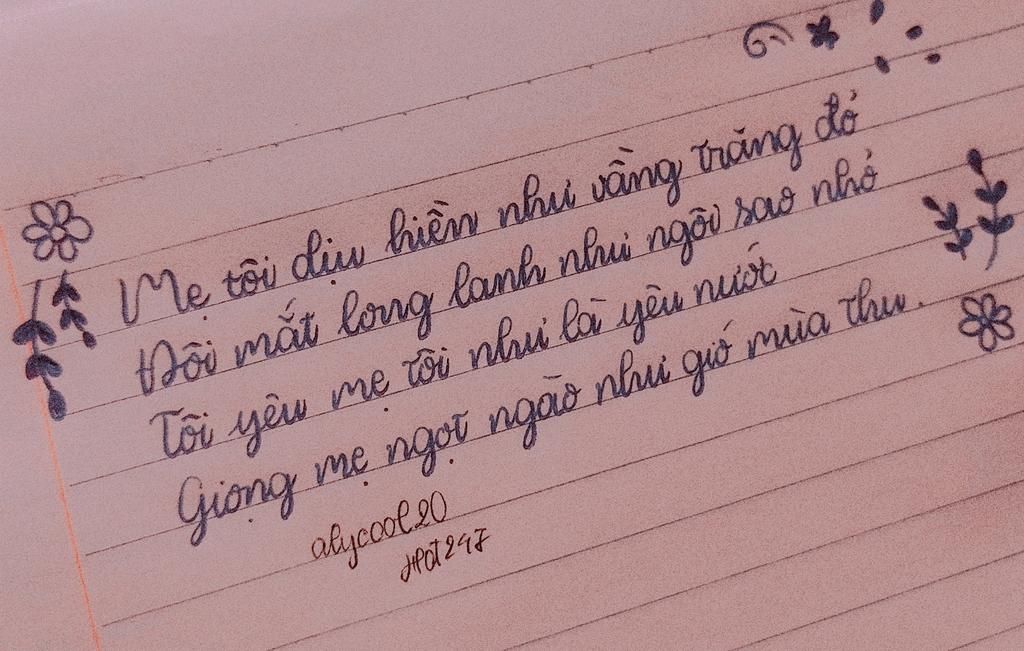 Mẹ tôi dịu hiền như vầng trăng đỏ
Đôi mắt long lanh như ngôi sao nhỏ
Tôi yêu mẹ tôi như là yêu nước
Giọng mẹ ngọt ngào như gió mùa thu.
alycool20
HOT247